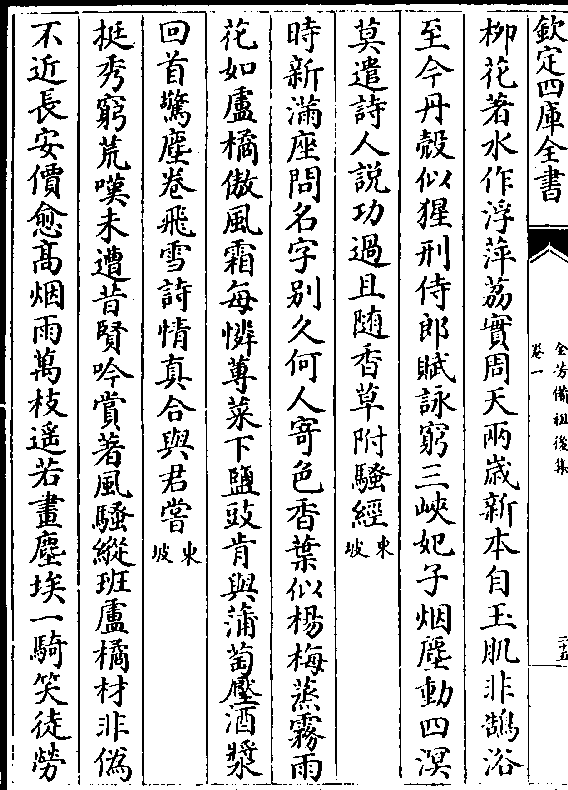 欽定四庫全書
全芳備祖後集
卷一
二十五
柳花著水作浮萍荔實周天兩歳新本自玉肌非鵠浴
至今丹殼似猩刑侍郎賦詠窮三峽妃子烟塵動四溟
莫遣詩人説功過且随香草附騷經東坡
時新滿座問名字别久何人寄色香葉似楊梅蒸霧雨
花如盧橘傲風霜每憐蓴菜下鹽豉肯與蒲萄壓酒漿
回首驚塵卷飛雪詩情真合與君嘗東坡
挺秀窮荒嘆未遭昔賢吟賞著風騷縱班盧橘材非偽
不近長安價愈髙烟雨萬枝遥若畫塵埃一騎笑徒勞